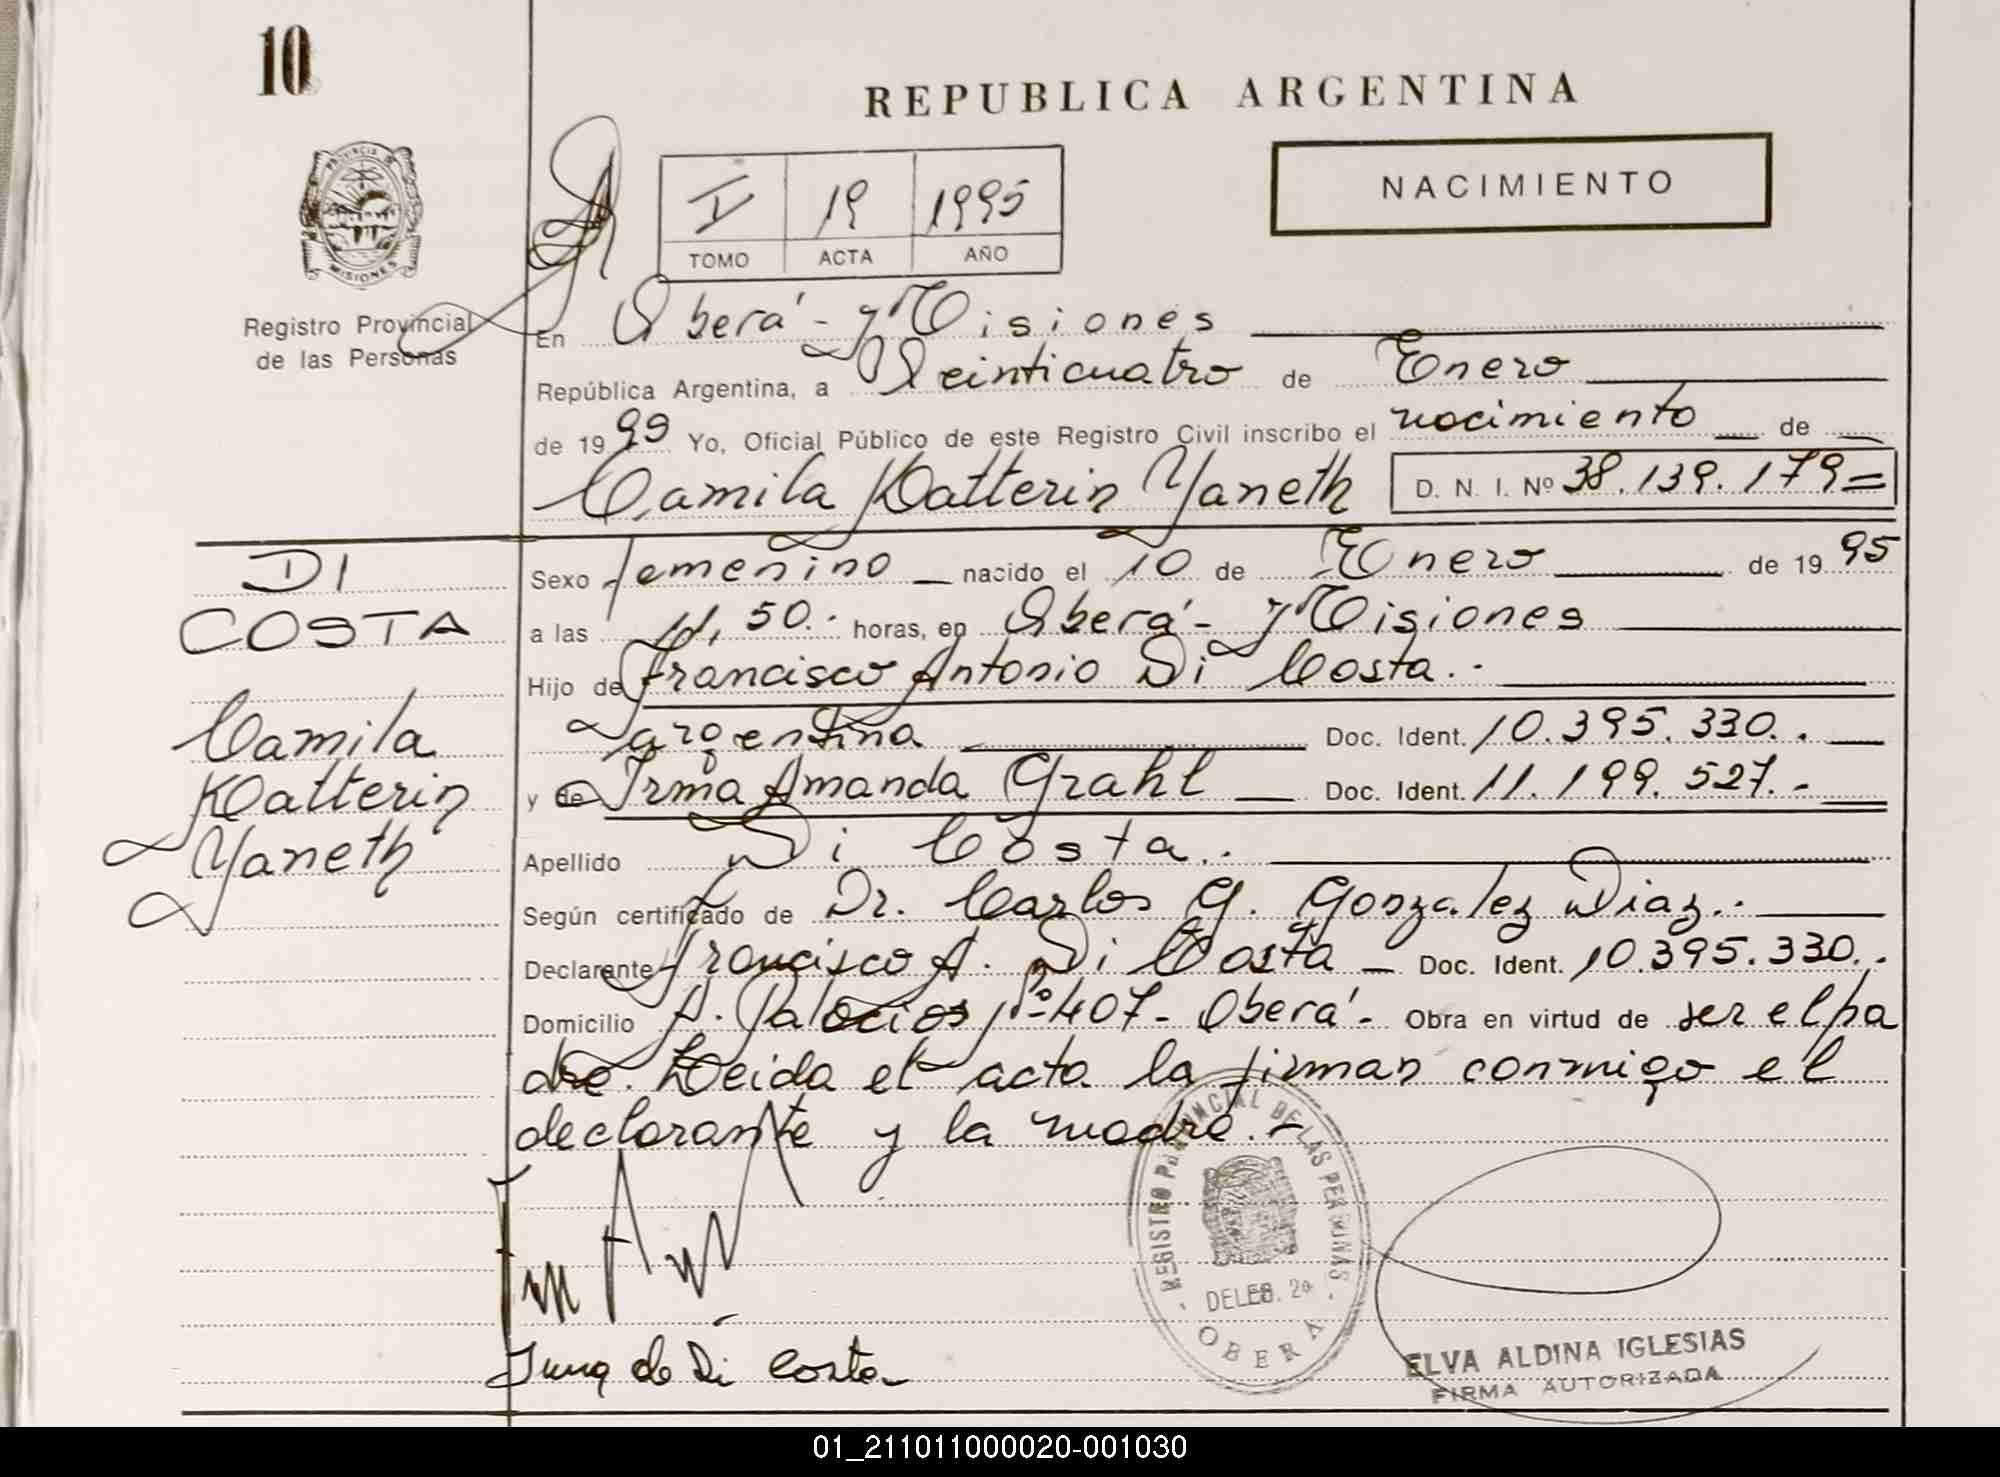 10
REPUBLICA ARGENTINA
NACIMIENTO
I 19 1995
TOMO ACTA AÑO
PROVINCIA DE
MISIONES
Registro Provincial
de las Personas
En Oberá - Misiones
República Argentina, a Veinticuatro de Enero
de 1999 Yo, Oficial Público de este Registro Civil inscribo el nacimiento de
Camila Katterin Yaneth D. N. I. Nº 38.139.179=
DI
COSTA
Camila
Katterin
Yaneth
Sexo femenino nacido el 10 de Enero de 1995
a las 11,50.- horas, en Oberá - Misiones
Hijo de Francisco Antonio Di Costa.-
argentina Doc. Ident. 10.395.330.-
y de Irma Amanda Grahl Doc. Ident. 11.199.527.-
Apellido Di Costa.-
Según certificado de Dr. Carlos G. Gonzalez Diaz.-
Declarante Francisco A. Di Costa - Doc. Ident. 10.395.330.-
Domicilio A. Palacios Nº 407 - Oberá - Obra en virtud de ser el pa
dre. Leida el acta la firman conmigo el
declarante y la madre.-
REGISTRO PROVINCIAL DE LAS PERSONAS
OBERA
de Di Costa
ELVA ALDINA IGLESIAS
FIRMA AUTORIZADA
01_211011000020-001030